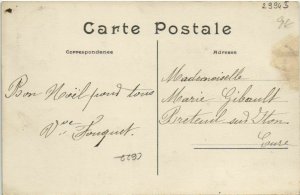 23945
Carte Postale
Correspondance
Adresse
Bon Noël pour tous
Vve Fouquet
Mademoiselle
Marie Gibault
Breteuil sur Iton
Eure